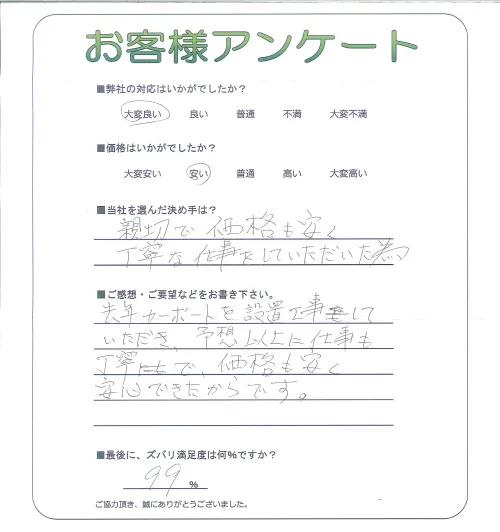 お客様アンケート
■弊社の対応はいかがでしたか？
大変良い 良い 普通 不満 大変不満
■価格はいかがでしたか？
大変安い 安い 普通 高い 大変高い
■当社を選んだ決め手は？
親切で価格も安く
丁寧な仕事をしていただいた為
■ご感想・ご要望などをお書き下さい。
去年カーポートを設置工事をして
いただき、予想以上に仕事も
丁寧で、価格も安く
安心できたからです。
■最後に、ズバリ満足度は何%ですか？
99 %
ご協力頂き、誠にありがとうございました。